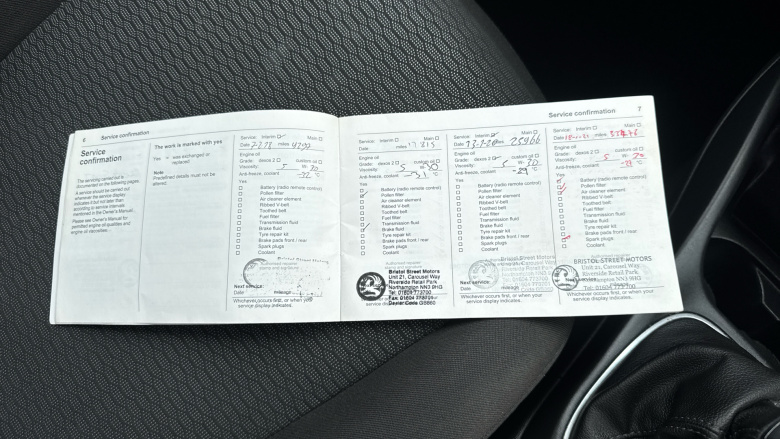 6 Service confirmation
Service
confirmation
The servicing carried out is
documented on the following pages.
A service should be carried out
whenever the service display
indicates it but not later than
according to service intervals
mentioned in the Owner's Manual.
Please see Owner's Manual for
permitted engine oil qualities and
engine oil viscosities.
The work is marked with yes
Yes = was exchanged or
replaced
Note
Predefined details must not be
altered.
Service: Interim Main
Date miles
Engine oil
Grade: dexos 2 custom oil
Viscosity: 5 W- 30
Anti-freeze, coolant °C
Yes
Battery (radio remote control)
Pollen filter
Air cleaner element
Ribbed V-belt
Toothed belt
Fuel filter
Transmission fluid
Brake fluid
Tyre repair kit
Brake pads front / rear
Spark plugs
Coolant
Next service:
Date mileage
Whichever occurs first, or when your
service display indicates.
Service: Interim Main
Date miles 17815
Engine oil
Grade: dexos 2 custom oil
Viscosity: 5 W- 30
Anti-freeze, coolant °C
Yes
Battery (radio remote control)
Pollen filter
Air cleaner element
Ribbed V-belt
Toothed belt
Fuel filter
Transmission fluid
Brake fluid
Tyre repair kit
Brake pads front / rear
Spark plugs
Coolant
Bristol Street Motors
Unit 21, Carousel Way
Riverside Retail Park
Northampton NN3 9HG
Tel: 01604 773700
Service confirmation 7
Service: Interim Main
Date miles 25966
Engine oil
Grade: dexos 2 custom oil
Viscosity: 5 W- 30
Anti-freeze, coolant -29 °C
Yes
Battery (radio remote control)
Pollen filter
Air cleaner element
Ribbed V-belt
Toothed belt
Fuel filter
Transmission fluid
Brake fluid
Tyre repair kit
Brake pads front / rear
Spark plugs
Coolant
Next service:
Date mileage
Whichever occurs first, or when your
service display indicates.
Service: Interim Main
Date miles
Engine oil
Grade: dexos 2 custom oil
Viscosity: 5 W-
Anti-freeze, coolant °C
Yes
Battery (radio remote control)
Pollen filter
Air cleaner element
Ribbed V-belt
Toothed belt
Fuel filter
Transmission fluid
Brake fluid
Tyre repair kit
Brake pads front / rear
Spark plugs
Coolant
BRISTOL STREET MOTORS
Unit 21, Carousel Way
Riverside Retail Park
Northampton NN3 9HG
Tel: 01604 773700
Whichever occurs first, or when your
service display indicates.